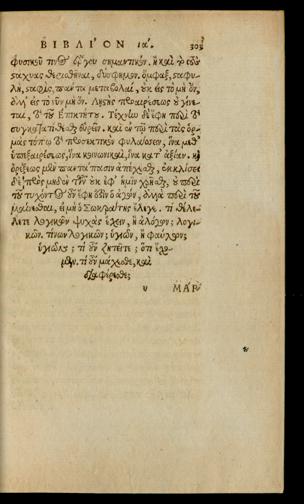 ΒΙΒΛΙ´ΟΝ ια´. 303
φυσικοῦ τινος ἔργου σημαντικόν. ἢ καὶ τὸ τοὺς
στάχυας θερισθῆναι, δύσφημον. ὄμφαξ, σταφυ
λὴ, σταφὶς, πάντα μεταβολαὶ, οὐκ εἰς τὸ μὴ ὂν,
ἀλλ' εἰς τὸ νῦν μὴ ὄν. Λῃστὴς προαιρέσεως οὐ γίνε
ται, τὸ τοῦ Ἐπικτήτου. Τέχνην δὲ ἔφη περὶ τὸ
συγκατατίθεσθαι εὑρεῖν. καὶ ἐν τῷ περὶ τὰς ὁρ
μὰς τόπῳ τὸ προσεκτικὸν φυλάσσειν, ἵνα μεθ'
ὑπεξαιρέσεως, ἵνα κοινωνικαὶ, ἵνα κατ' ἀξίαν. καὶ
ὀρέξεως μὲν παντάπασιν ἀπέχεσθαι, ἐκκλίσει
δὲ πρὸς μηδὲν τῶν οὐκ ἐφ' ἡμῖν χρῆσθαι. οὐ περὶ
τοῦ τυχόντος οὖν ἔφη ἐστὶν ὁ ἀγὼν, ἀλλὰ περὶ τοῦ
μαίνεσθαι, ἢ μή. ὁ Σωκράτης ἔλεγε. τί θέλε
λετε λογικῶν ψυχὰς ἔχειν, ἢ ἀλόγων; λογι
κῶν. τίνων λογικῶν; ὑγιῶν, ἢ φαύλων;
ὑγιῶν; τί οὖν ζητεῖτε; ὅτι ἔχο
μεν. τί οὖν μάχεσθε, καὶ
διαφέρεσθε;
υ ΜΑΡ